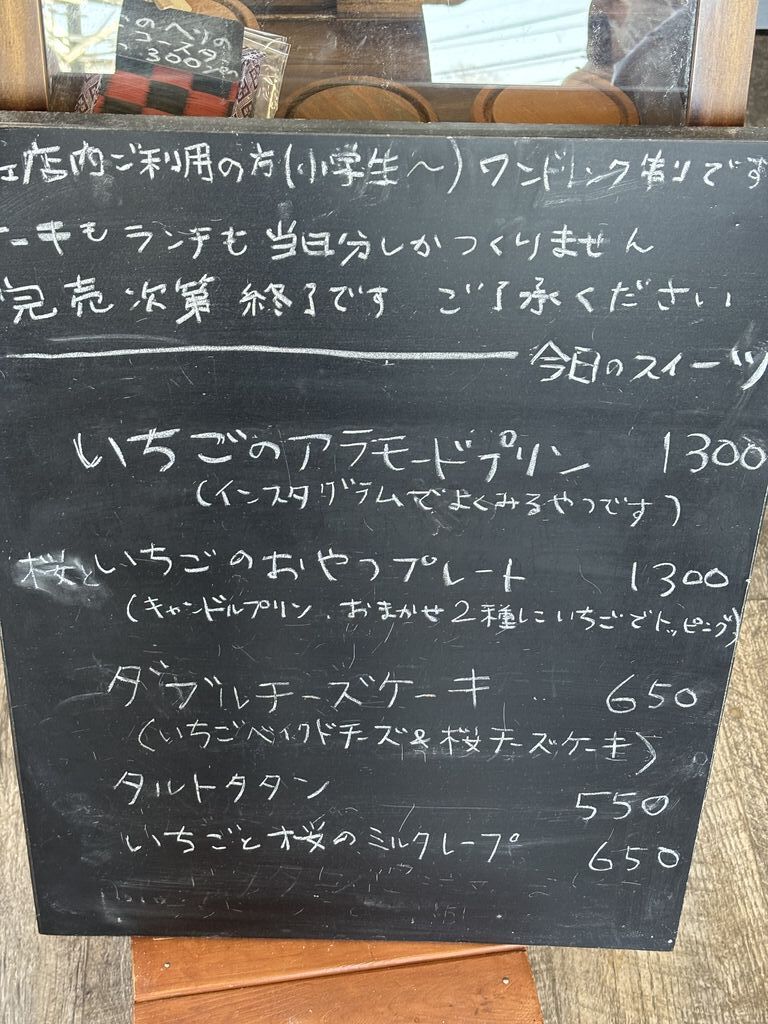 のヘリの
コースター
300
店内ご利用の方(小学生〜)ワンドリンク制です
ーキも ランチも 当日分しかつくりません
完売次第 終了です ご了承ください
今日のスイーツ
いちごのアラモードプリン 1300
(インスタグラムでよくみるやつです)
桜といちごのおやつプレート 1300
(キャンドルプリン、おまかせ2種にいちごでトッピング)
ダブルチーズケーキ 650
(いちごベイクドチーズ&桜チーズケーキ)
タルトタタン 550
いちごと桜のミルクレープ 650